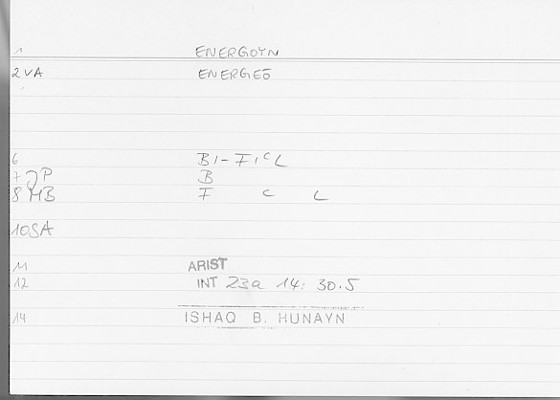 1 ENERGOYN
2 VA ENERGEŌ
6 BI-FICL
7 QP B
8 MB F C L
10 SA
11 ARIST
12 INT 23a 14: 30.5
14 ISHAQ B. HUNAYN